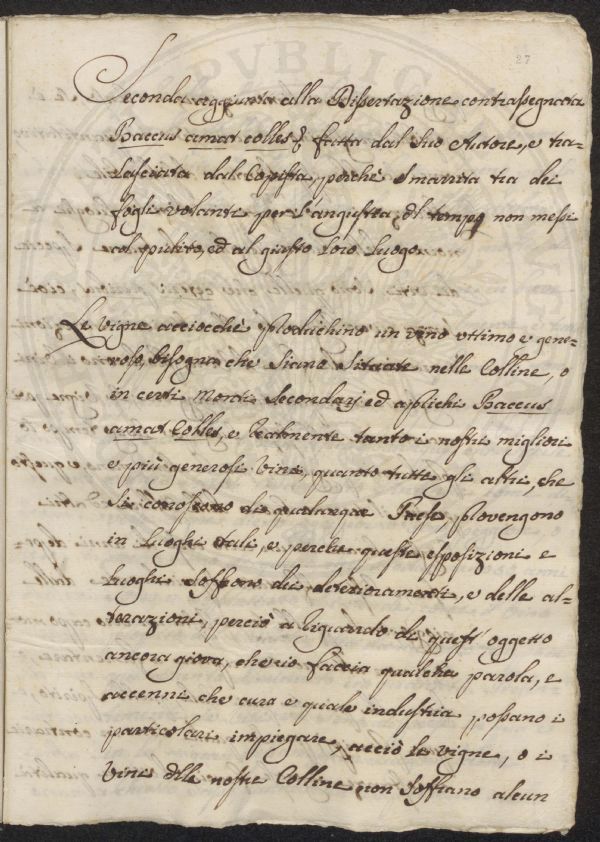 27
Seconda aggiunta alla Dissertazione contrassegnata
Baccus amat colles & fatta dal Suo Autore, e tra-
lasciata dal Copista, perchè Smarrita tra dei
fogli volanti per l'angustia di tempo non messi
al pulito, ed al giusto loro luogo.
Le vigne acciocchè produchino un vino ottimo e gene-
roso, bisogna che Siano Situate nelle Colline, o
in certi Monti Secondarj ed aprichi Baccus
amat Colles, e realmente tanto i nostri migliori
e più generosi Vini, quanto tutti gli altri, che
Si conoscono di qualunque Paese, provengono
in Luoghi tali, e perche queste esposizioni e
Luoghi Soffrono dei deterioramenti, e delle al-
terazioni, perciò a riguardo di quest' oggetto
ancora giova, che io faccia qualche parola, e
accenni che cura e quale industria possano i
particolari impiegare, acciò le vigne, o i
Vini delle nostre Colline non Soffrano alcun